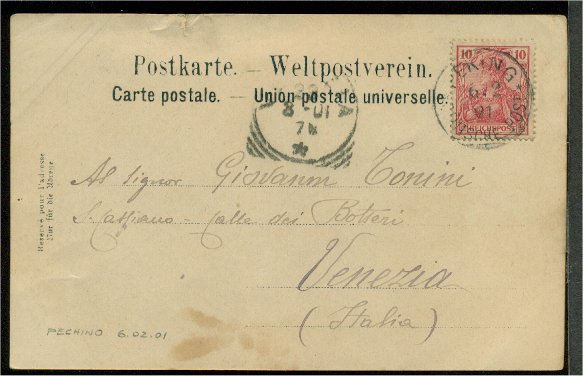 Postkarte. — Weltpostverein.
Carte postale. — Union postale universelle.
10 10
PEKING
6 2
01
8 - 01
7M
Réservé pour l'adresse
Nur für die Adresse
Al Signor Giovanni Tonini
S. Cassiano - Calle dei Botteri
Venezia
(Italia)
PECHINO 6.02.01